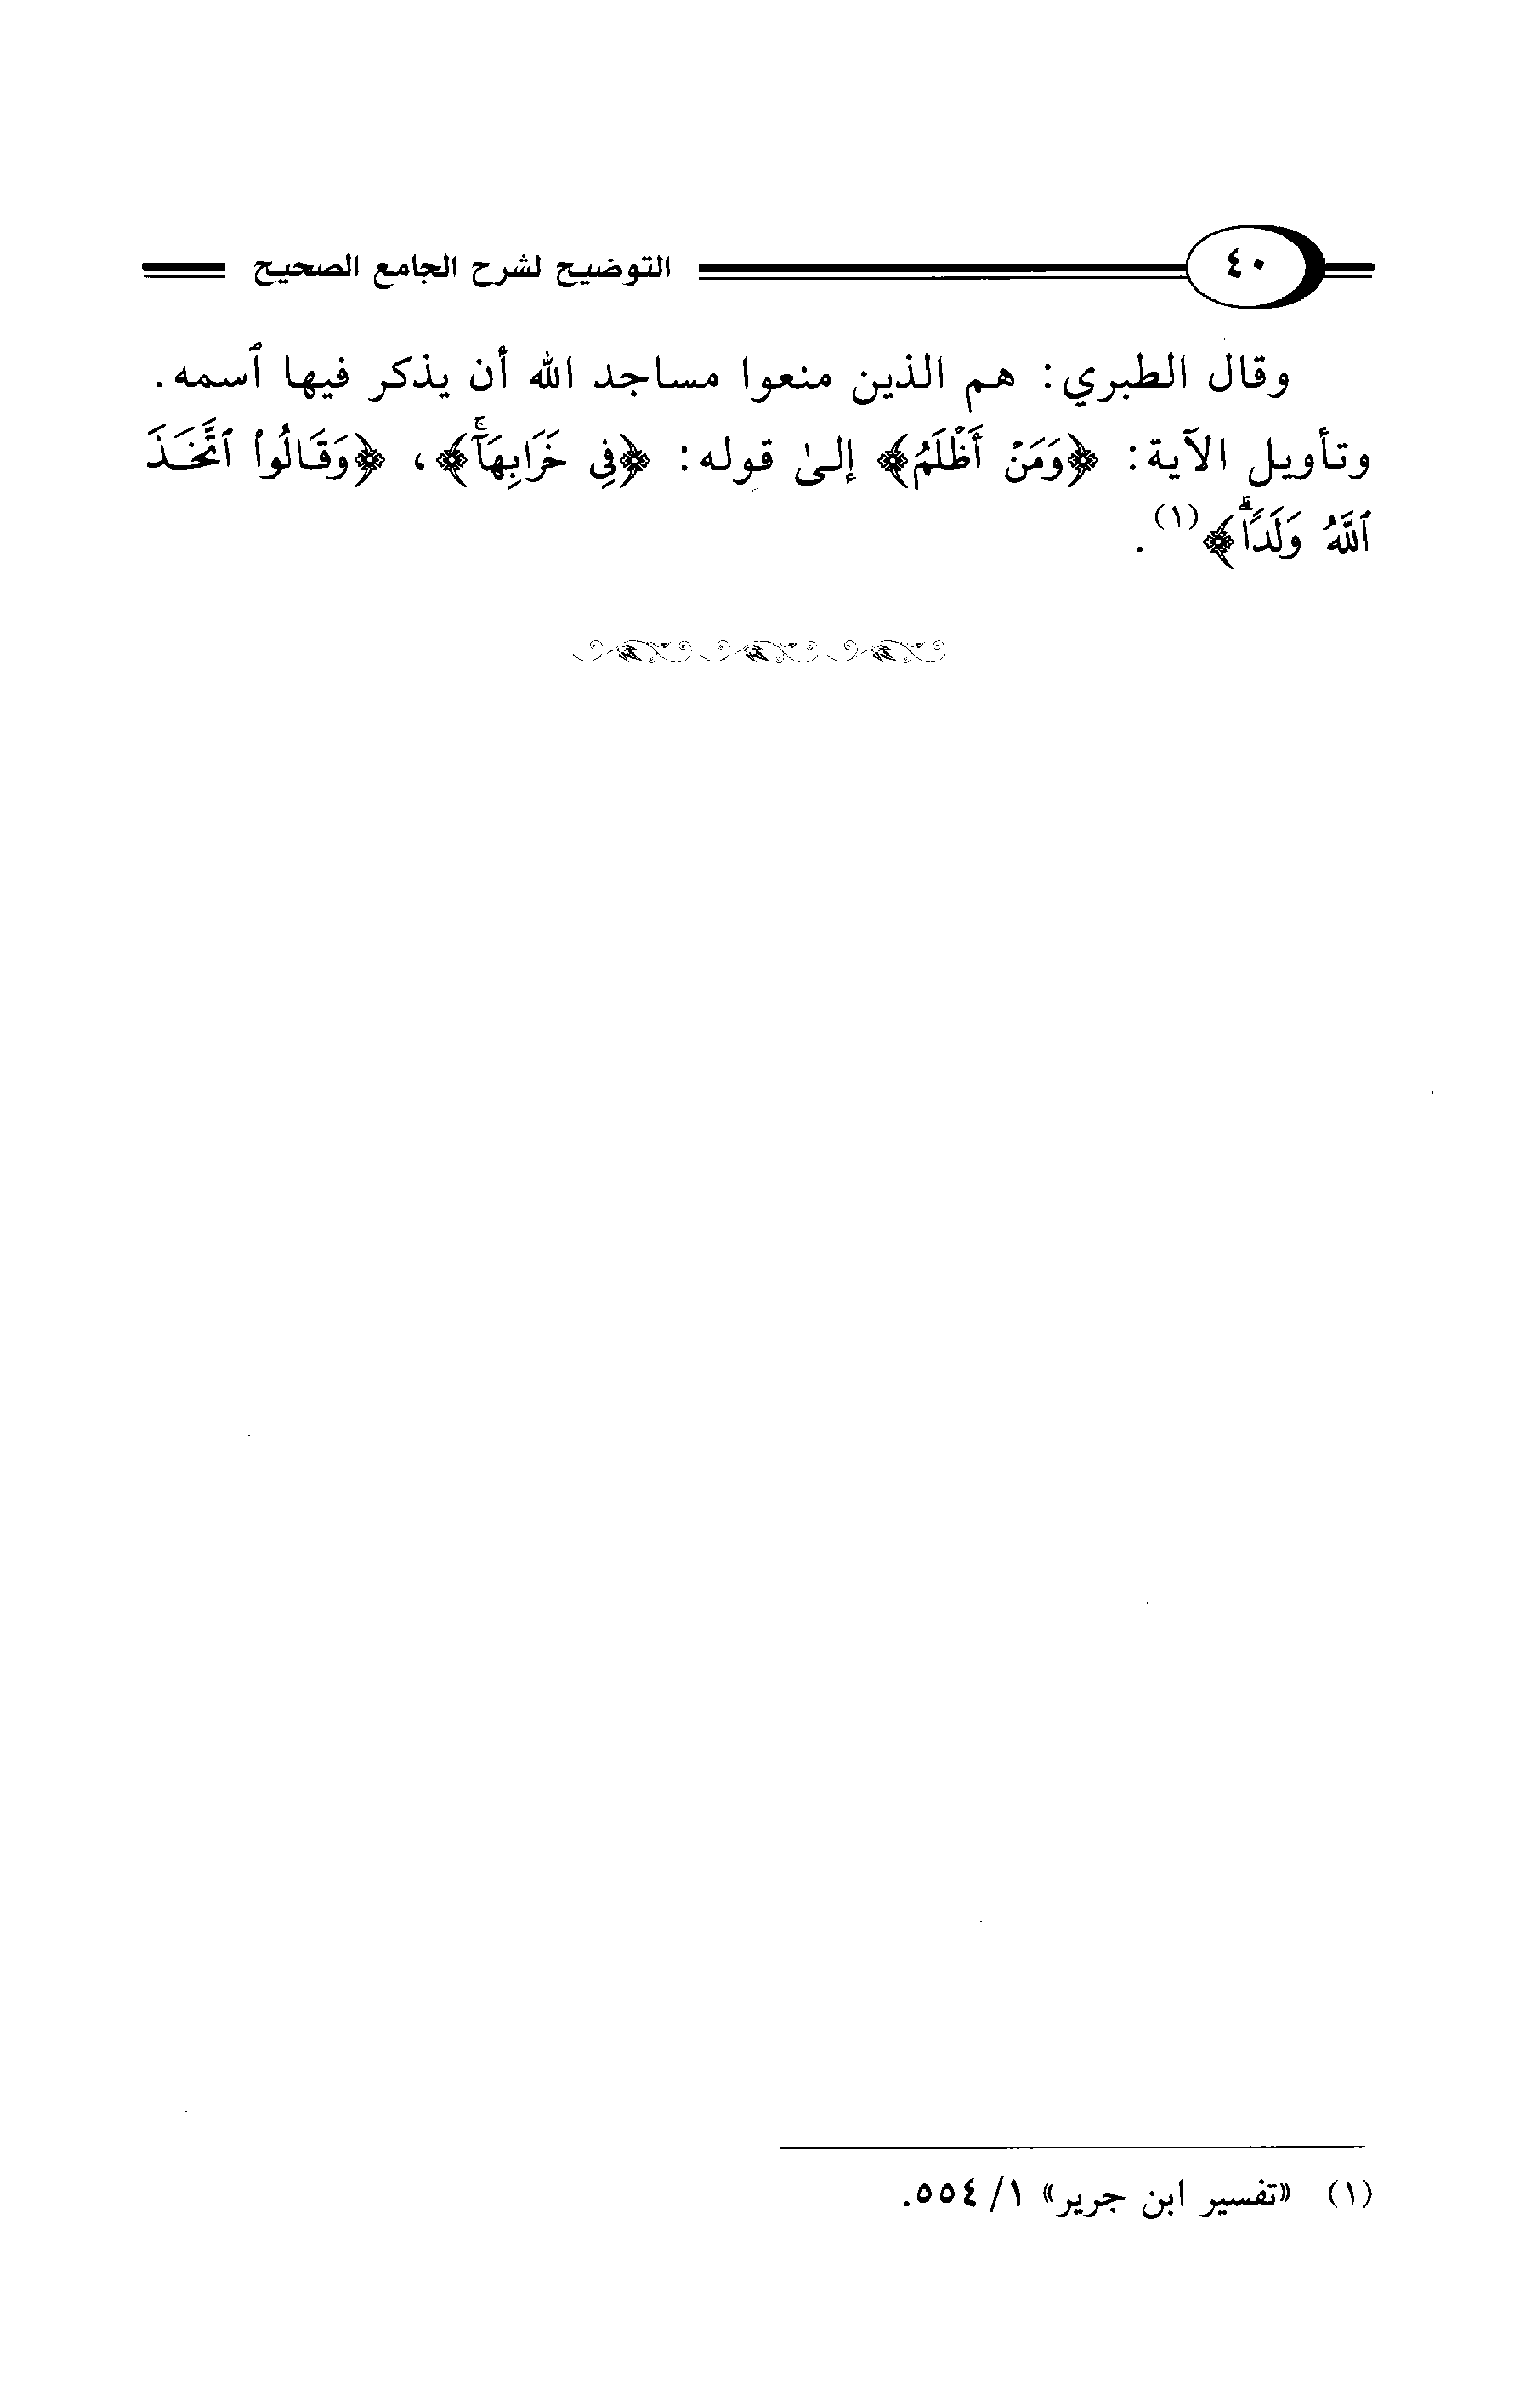 ٤٠ التوضيح لشرح الجامع الصحيح
وقال الطبري: هم الذين منعوا مساجد الله أن يذكر فيها ٱسمه.
وتأويل الآية: ﴿وَمَنْ أَظْلَمُ﴾ إلىٰ قوله: ﴿فِي خَرَابِهَآۚ﴾، ﴿وَقَالُوا۟ ٱتَّخَذَ
ٱللَّهُ وَلَدًاۗ﴾(١).
(١) «تفسير ابن جرير» ١/ ٥٥٤.